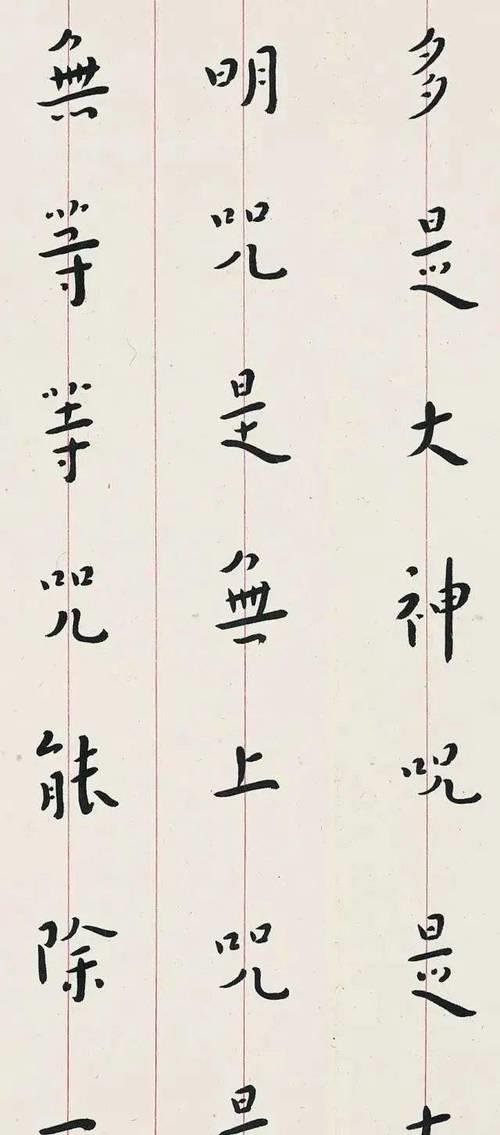 多是大神咒是大
明咒是無上咒是
無等等咒能除一